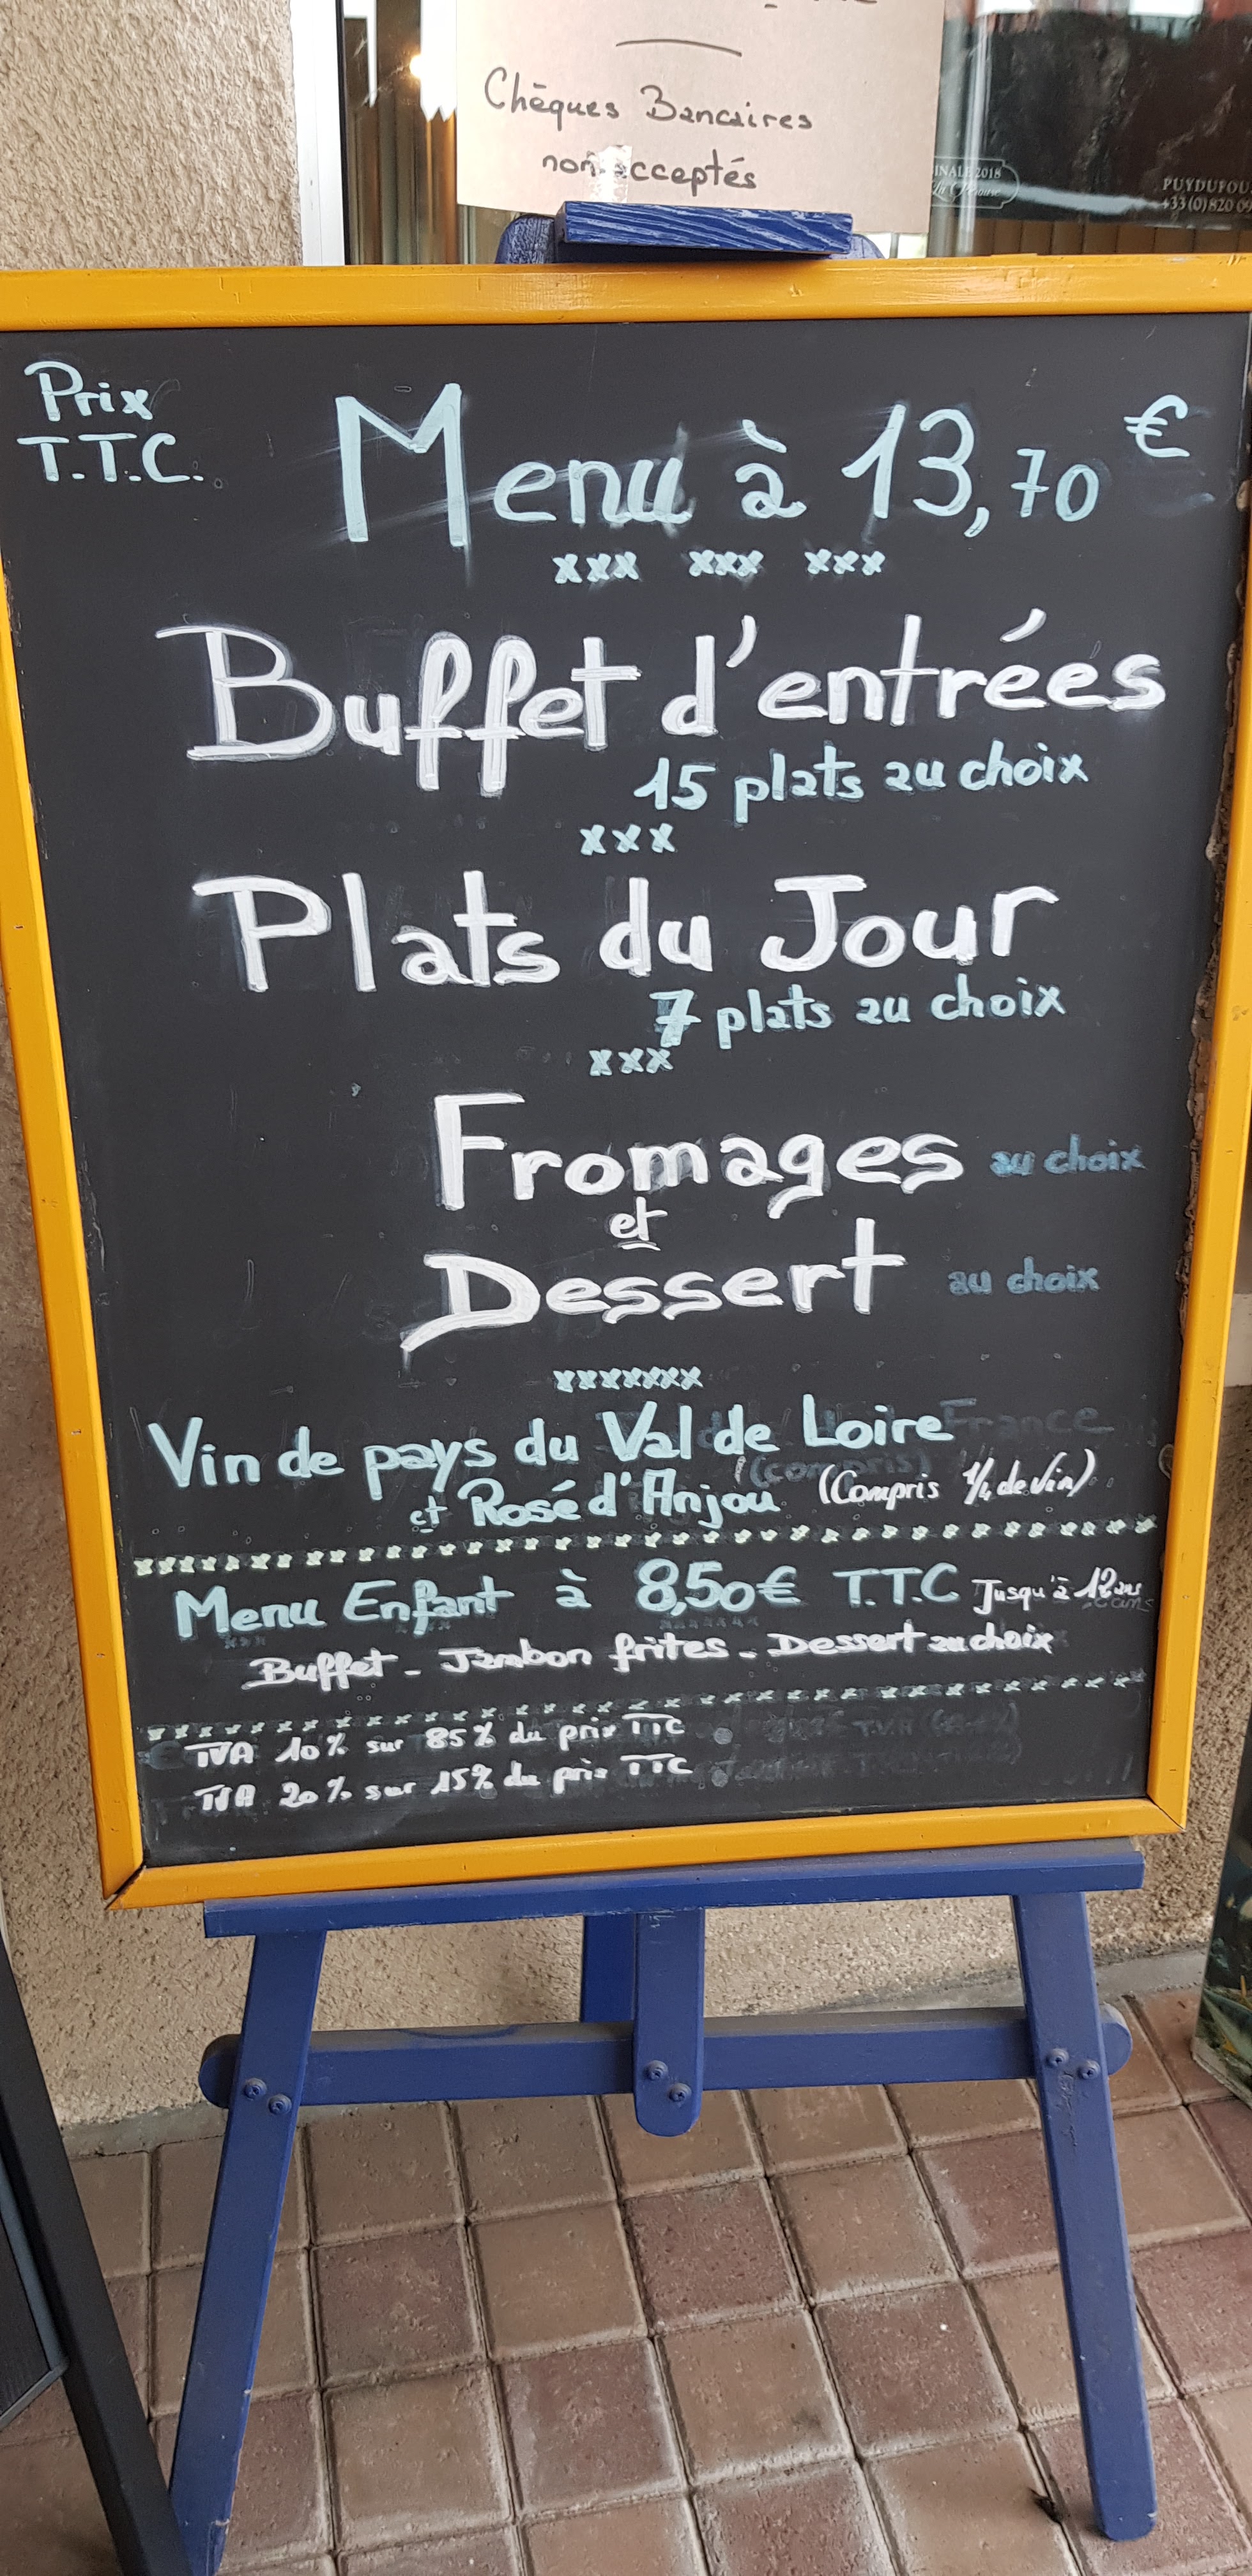 Chèques Bancaires
non acceptés
INALE 2018
PUYDUFOU
+33 (0) 820 09
Prix
T.T.C.
Menu à 13,70 €
xxx xxx xxx
Buffet d'entrées
15 plats au choix
xxx
Plats du Jour
7 plats au choix
xxx
Fromages au choix
et
Dessert au choix
xxxxxxx
Vin de pays du Val de Loire France
(compris)
et Rosé d'Anjou (Compris 1/4 de vin)
Menu Enfant à 8,50€ T.T.C Jusqu'à 12 ans
Buffet - Jambon frites - Dessert au choix
TVA 10% sur 85% du prix TTC
TVA 20% sur 15% du prix TTC